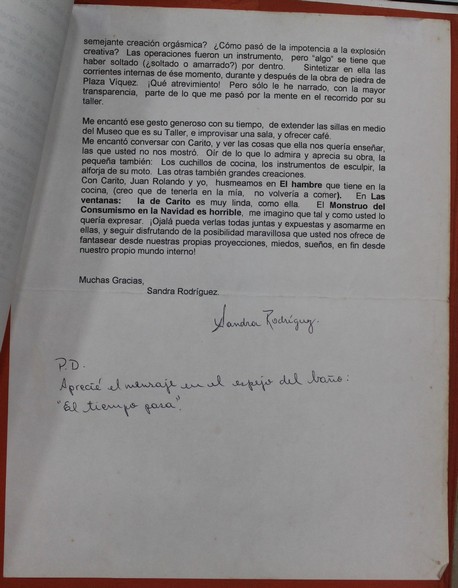 semejante creación orgásmica?  ¿Cómo pasó de la impotencia a la explosión
creativa?  Las operaciones fueron un instrumento,  pero "algo" se tiene que
haber soltado (¿soltado o amarrado?) por dentro.  Sintetizar en ella las
corrientes internas de ése momento, durante y después de la obra de piedra de
Plaza Víquez.  ¡Qué atrevimiento!  Pero sólo le he narrado, con la mayor
transparencia,  parte de lo que me pasó por la mente en el recorrido por su
taller.
Me encantó ese gesto generoso con su tiempo,  de extender las sillas en medio
del Museo que es su Taller, e improvisar una sala, y ofrecer café.
Me encantó conversar con Carito, y ver las cosas que ella nos quería enseñar,
las que usted no nos mostró.  Oír de lo que lo admira y aprecia su obra, la
pequeña también:  Los cuchillos de cocina, los instrumentos de esculpir, la
alforja de su moto.  Las otras también grandes creaciones.
Con Carito, Juan Rolando y yo,  husmeamos en El hambre que tiene en la
cocina, (creo que de tenerla en la mía,  no volvería a comer).  En Las
ventanas:  la de Carito es muy linda, como ella.  El Monstruo del
Consumismo en la Navidad es horrible, me imagino que tal y como usted lo
quería expresar.  ¡Ojalá pueda verlas todas juntas y expuestas y asomarme en
ellas, y seguir disfrutando de la posibilidad maravillosa que usted nos ofrece de
fantasear desde nuestras propias proyecciones, miedos, sueños, en fin desde
nuestro propio mundo interno!
Muchas Gracias,
Sandra Rodríguez.
Sandra Rodríguez.
P.D.
Aprecié el mensaje en el espejo del baño:
"El tiempo pasa".